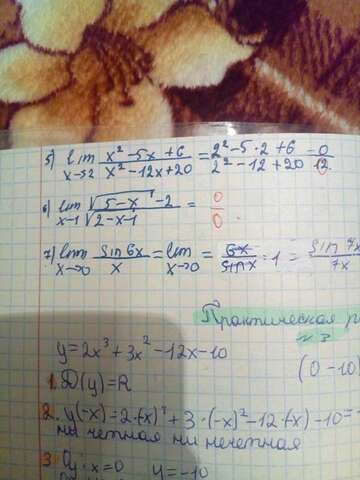 5) lim x→2 x²-5x+6 / x²-12x+20 = 2²-5·2+6 / 2²-12+20 = 0 / 12
0
6) lim x→1 √5-x -2 / √2-x-1 = 0 / 0
7) lim x→0 sin6x / x = lim x→0 = 6x / sinx : 1 = sin 7x / 7x
Практическая р
N 3
y=2x³+3x²-12x-10
(0-10)
1. D(y)=R
2. y(-x)=2·(-x)³+3·(-x)²-12·(-x)-10=
ни четная ни нечетная
3. Oy·x=0 y=-10